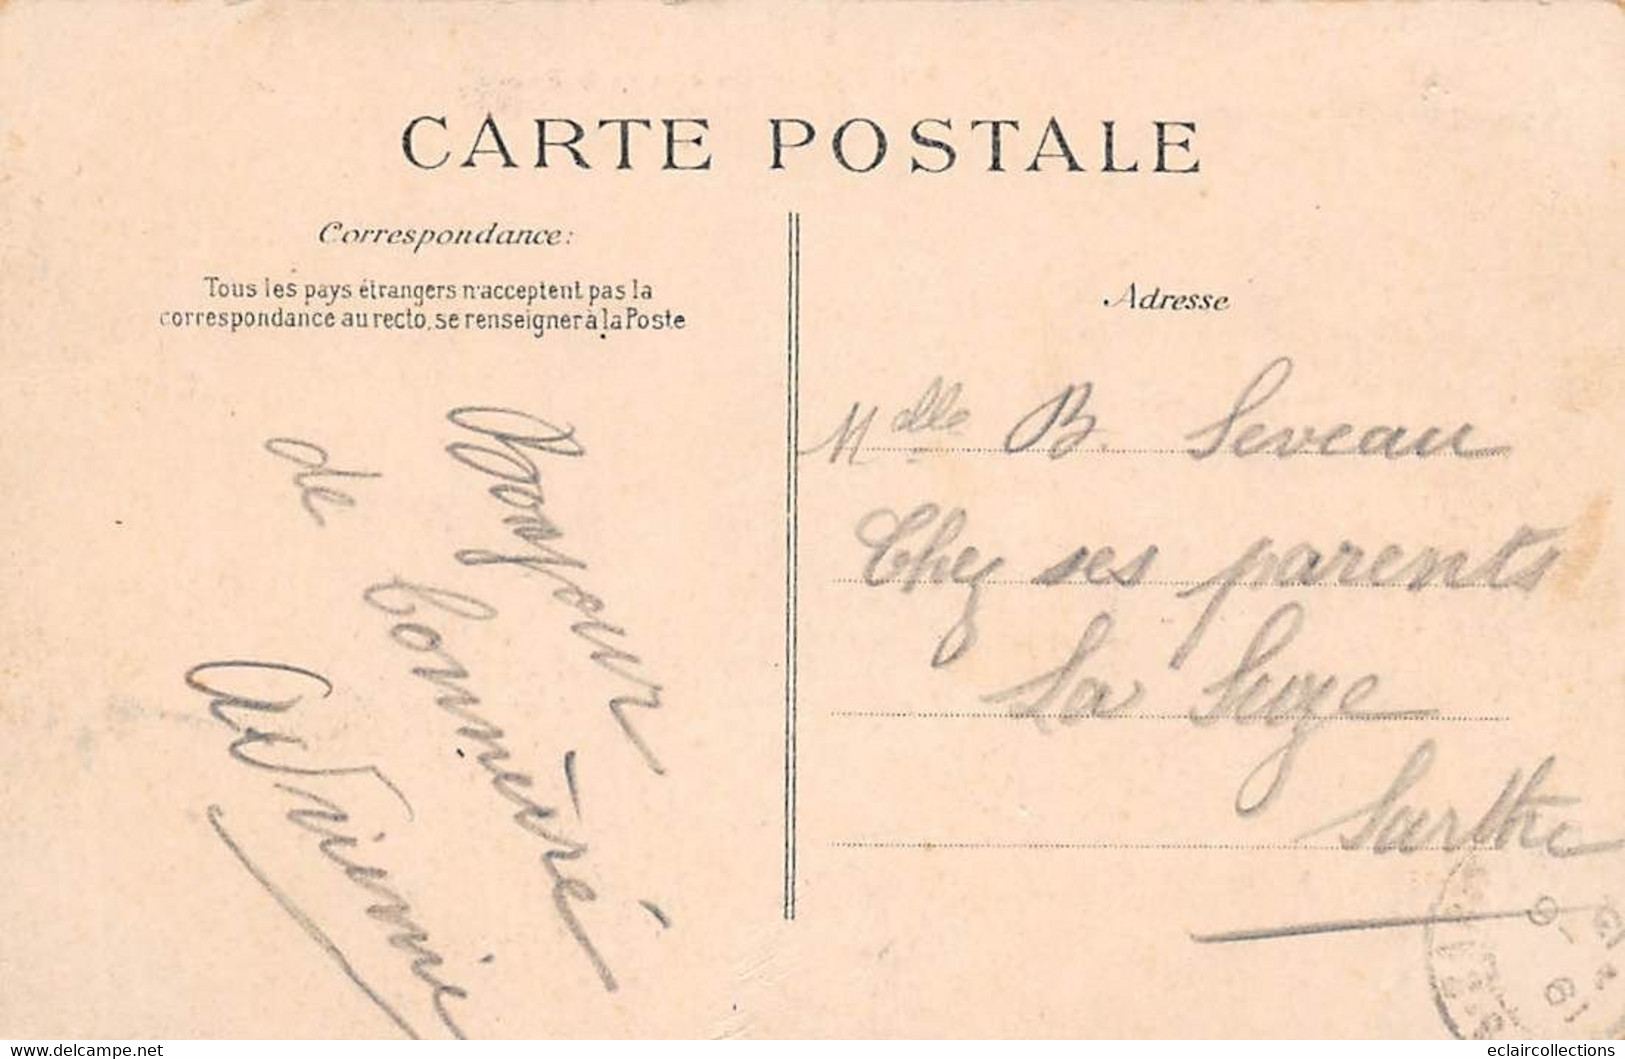 CARTE POSTALE
Correspondance:
Tous les pays étrangers n'acceptent pas la
correspondance au recto, se renseigner à la Poste
Adresse
Bonjour
de Connerré
Mdlle B. Seveau
Chez ses parents
La Suze
Sarthe
www.delcampe.net
eclaircollections